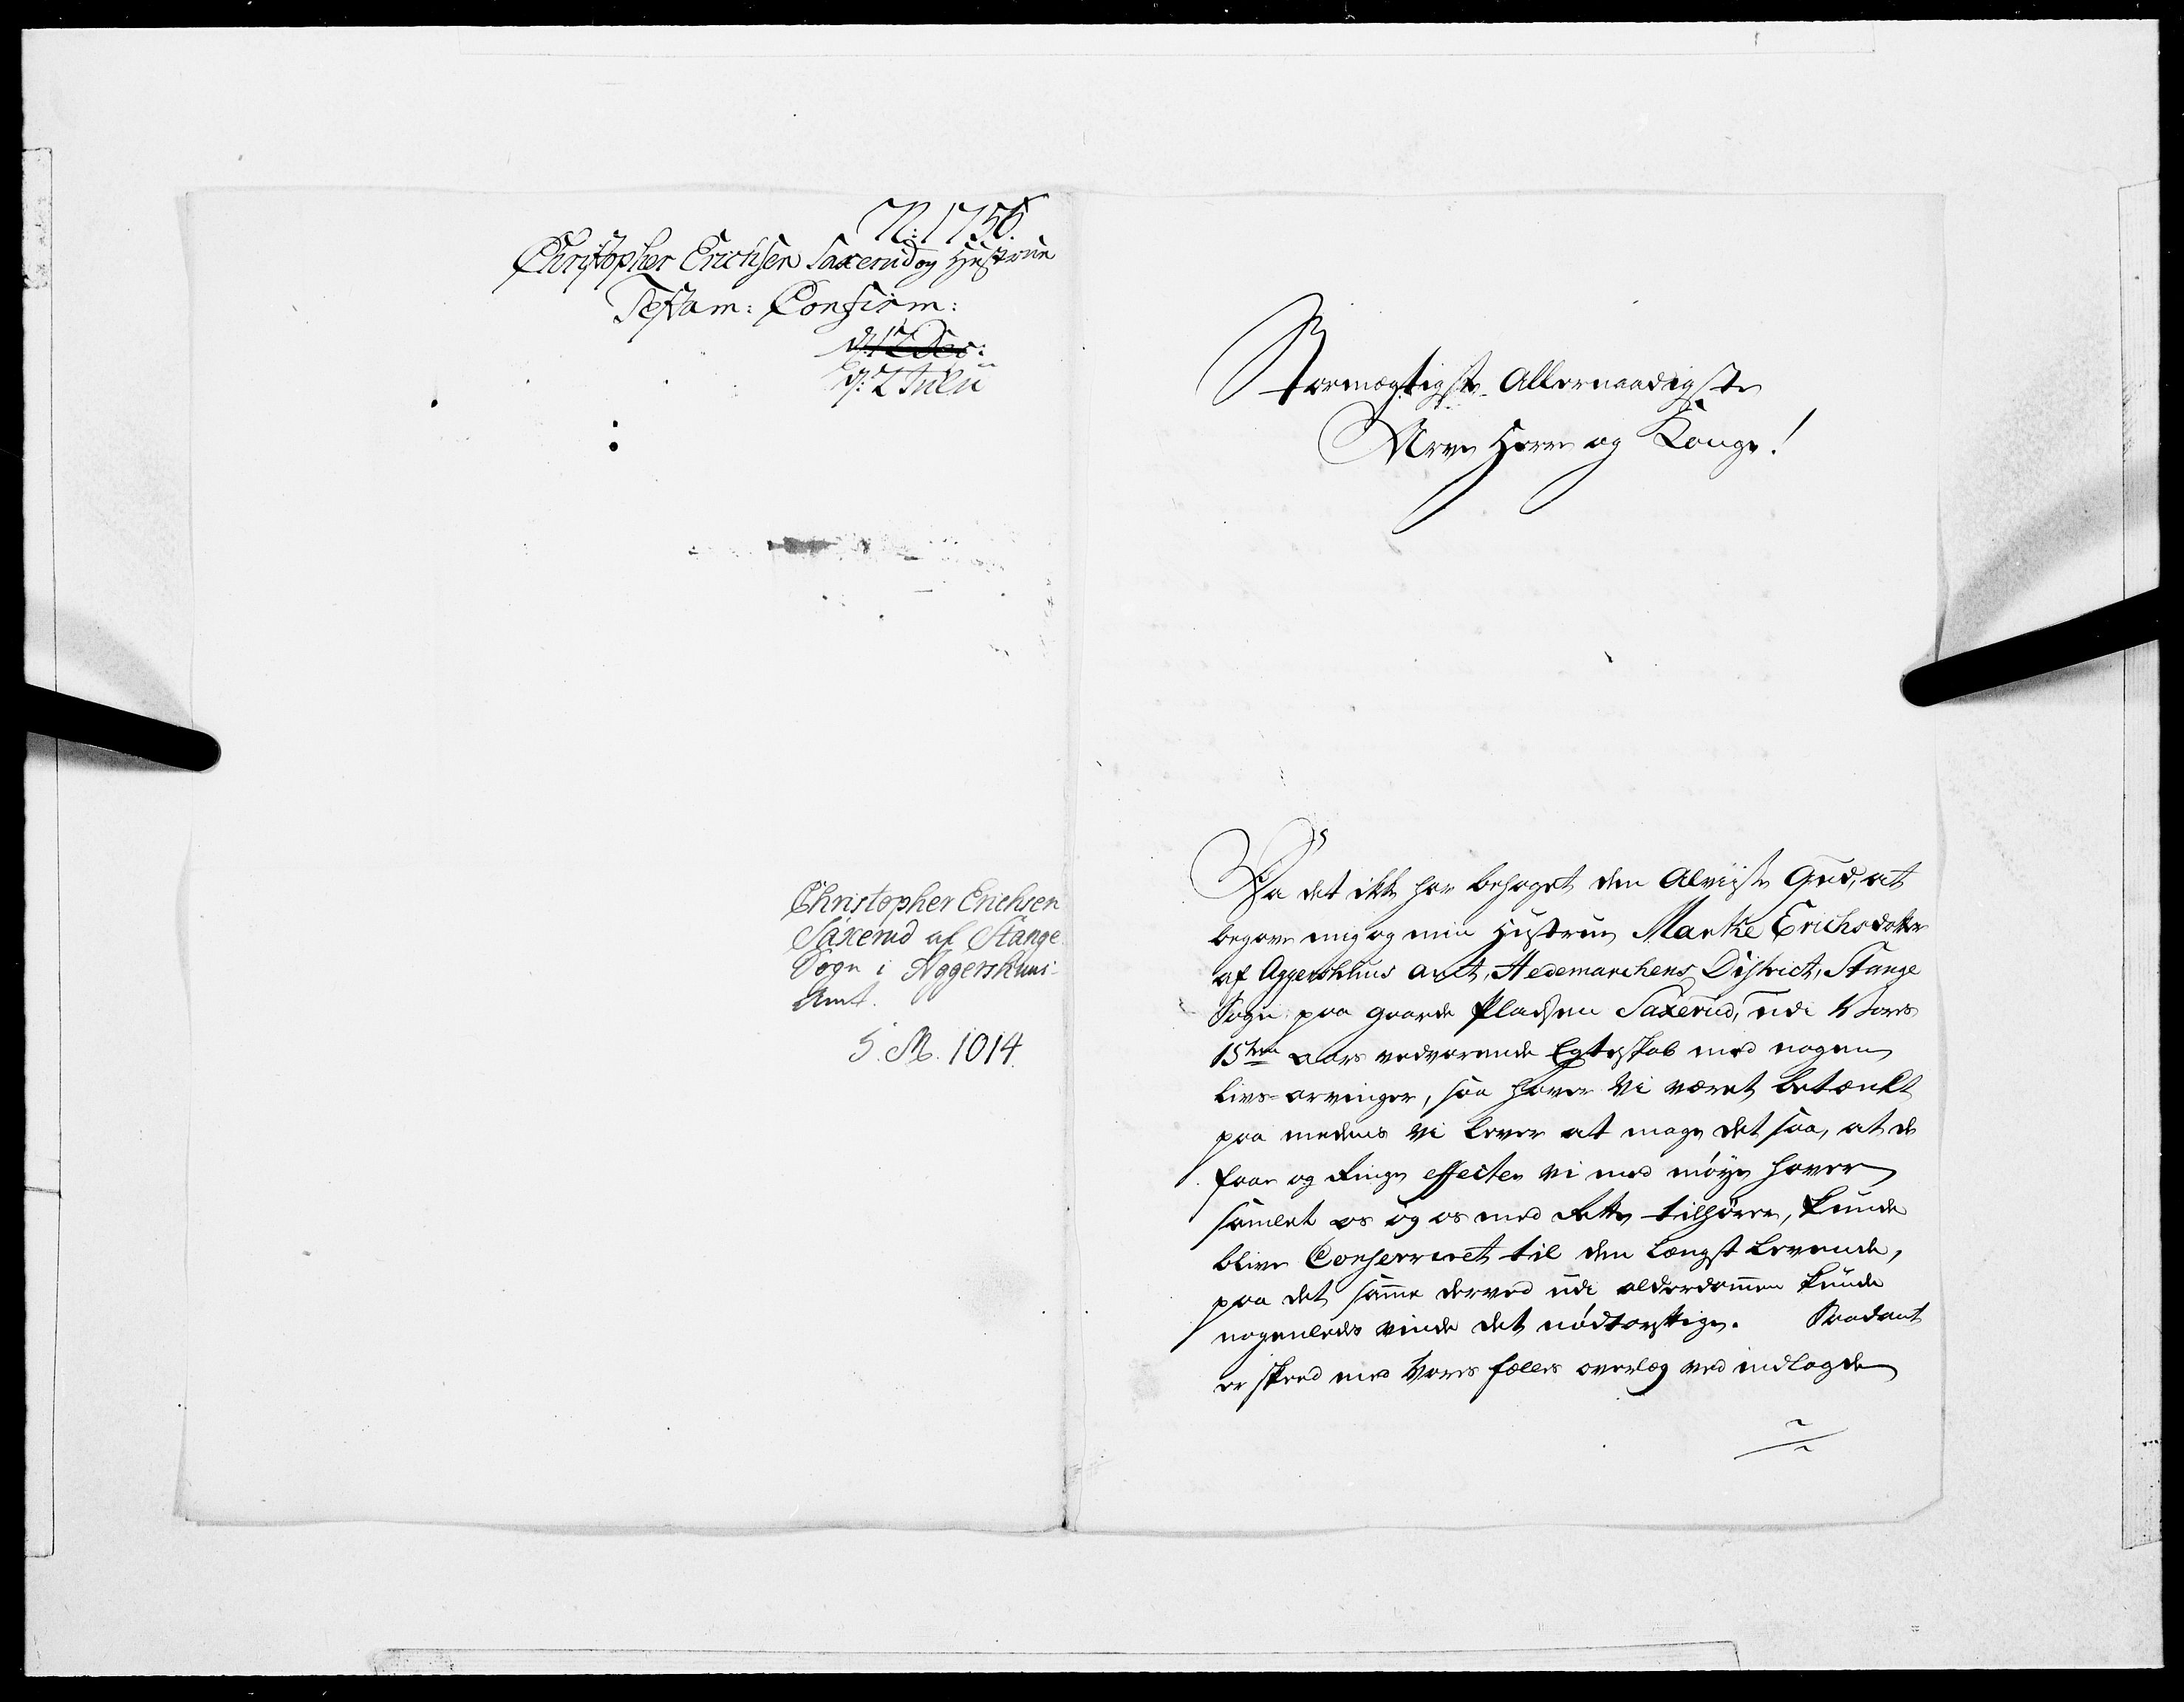 N: 1756.
Christopher Erichsen Saxerud og Hustrue
Testam: Confirm:
d: 17 Dec:
d: 2 Julii
Christopher Erichsen
Saxerud af Stange
Sogn i Aggershuus
Amt.
S. M. 1014.
Stormægtigste Allernaadigste
Arve Herre og Konge!
Da det ikke har behaget den Alviiste Gud, at
begave mig og min Hustrue Marthe Erichsdatter
af Aggershuus amt, Hedemarchens District, Stange
Sogn paa gaarde Pladsen Saxerud, udi Vores
15ten aars vedvarende Egteskab med nogen
livs-arvinger, saa haver Vi været betænkt
paa medens Vi lever at mage det saa, at de
faae og Ringe effecter Vi med møye haver
samlet os og os med Rette tilhører, kunde
blive Conserveret til den længst levende,
paa det samme derved udi alderdommen kunde
nogenledes vinde det nødtørftige. Saadant
er skeed med Vores fælles overlæg ved indlagde